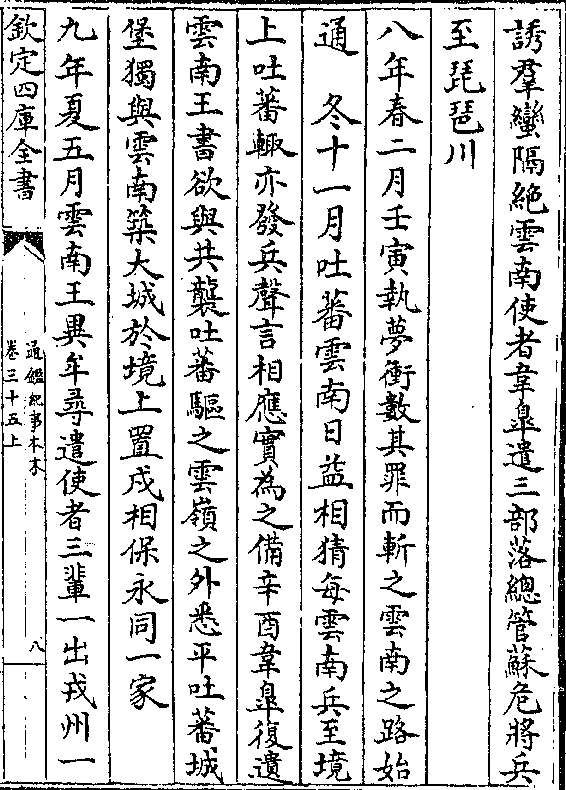 誘羣蠻隔絶雲南使者韋臯遣三部落總管蘇危將兵
至琵琶川
八年春二月壬寅執夢衝數其罪而斬之雲南之路始
通　冬十一月吐蕃雲南日益相猜每雲南兵至境
上吐蕃輙亦發兵聲言相應實為之備辛酉韋臯復遺
雲南王書欲與共襲吐蕃驅之雲嶺之外悉平吐蕃城
堡獨與雲南築大城於境上置戍相保永同一家
九年夏五月雲南王異牟尋遣使者三輩一出戎州一
欽定四庫全書
通鑑紀事本末
卷三十五上
八